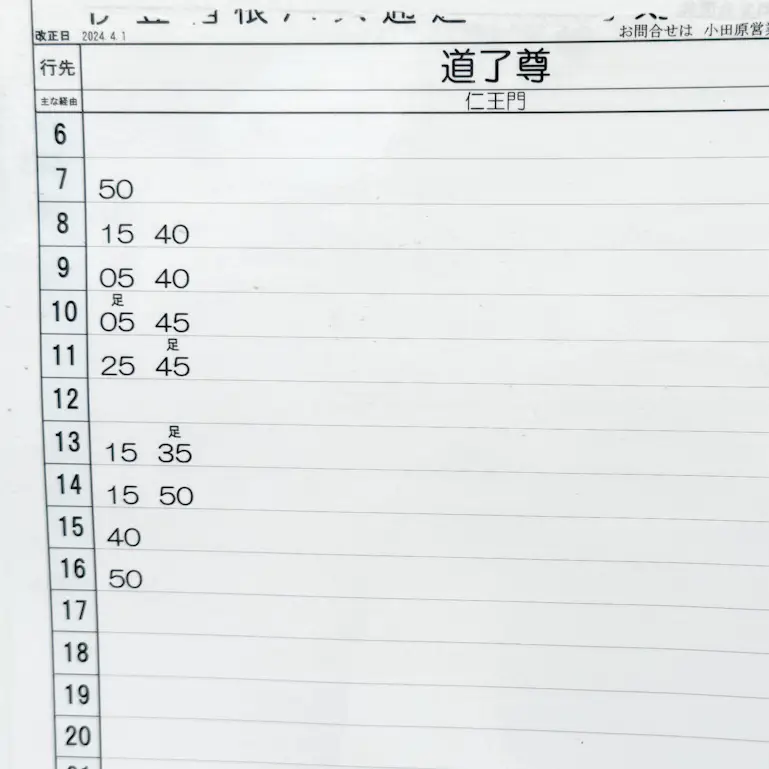 改正日 2024.4.1
お問合せは 小田原営業
行先 道了尊
主な経由 仁王門
6
7 50
8 15 40
9 05 40
足
10 05 45
足
11 25 45
12
足
13 15 35
14 15 50
15 40
16 50
17
18
19
20